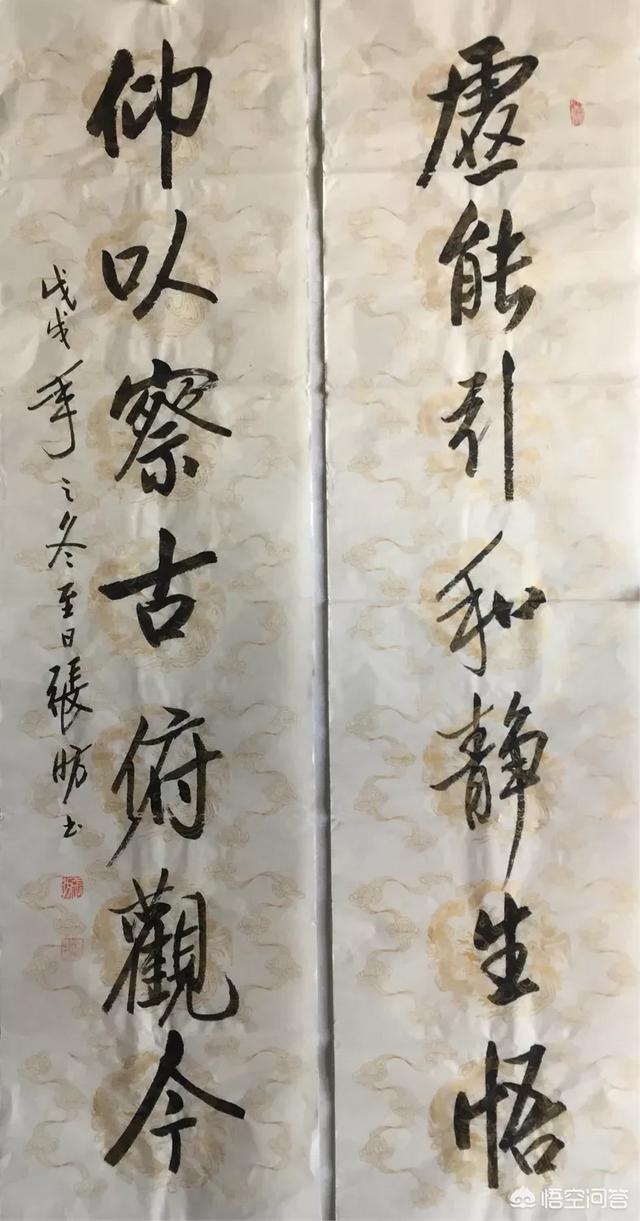 虚能引和静生悟
仰以察古俯觀今
戊戌年之冬至日張昉书
悟空问答